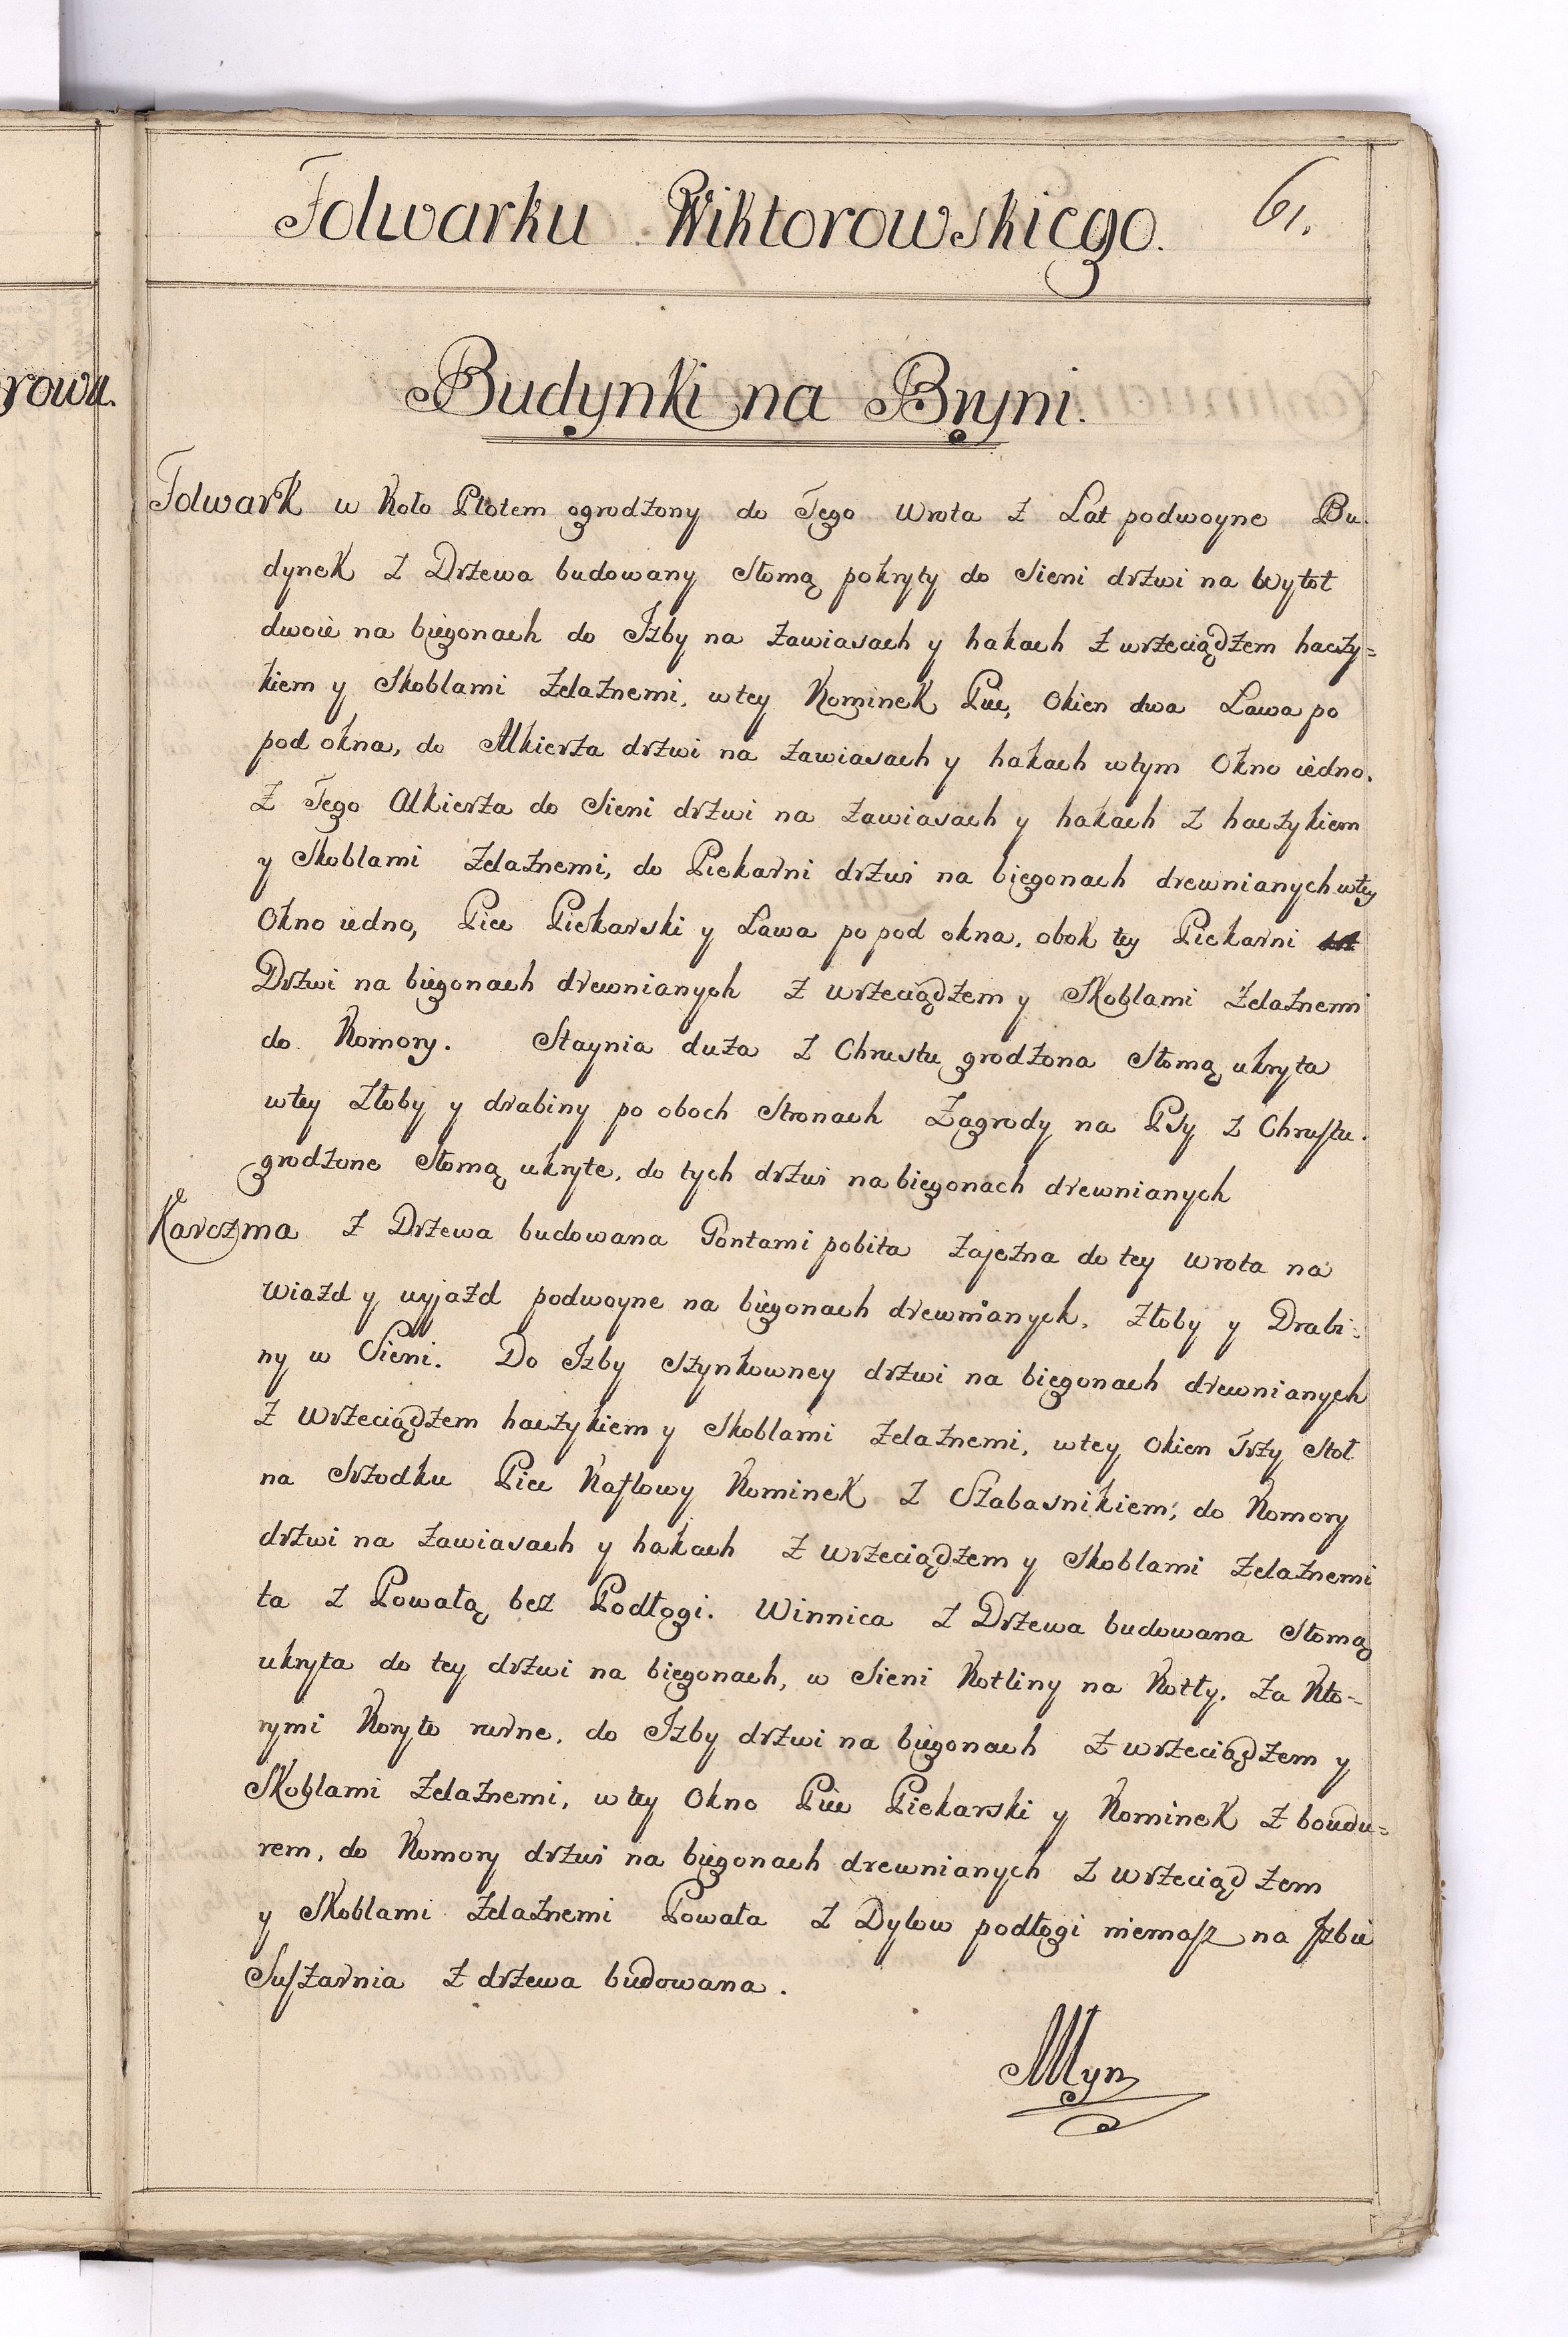 rowa.
Folwarku Wiktorowskiego. 61.
Budynki na Bryni.
Folwark w Koło Płotem ogrodzony do Tego Wrota z Łat podwoyne Bu-
dynek z Drzewa budowany Słomą pokryty do Sieni drzwi na Wylot
dwoie na biegonach do Izby na zawiasach y hakach z wrzeciądzem haczy=
kiem y Skoblami żelaznemi, w tey Kominek Piec, Okien dwa Ława po
pod okna, do Alkierza drzwi na zawiasach y hakach w tym Okno iedno.
Z Tego Alkierza do Sieni drzwi na zawiasach y hakach z haczykiem
y Skoblami żelaznemi, do Piekarni drzwi na biegonach drewnianych w tey
Okno iedno, Piec Piekarski y Ława po pod okna, obok tey Piekarni
Drzwi na biegonach drewnianych z wrzeciądzem y Skoblami żelaznemi
do Komory. Staynia duża z Chrustu grodzona Słomą ukryta
w tey Żłoby y drabiny po oboch Stronach Zagrody na Psy z Chrustu
grodzone Słomą ukryte, do tych drzwi na biegonach drewnianych
Karczma z Drzewa budowana Gontami pobita zajezna do tey wrota na
wiazd y wyjazd podwoyne na biegonach drewnianych, Żłoby y Drabi=
ny w Sieni. Do Izby szynkowney drzwi na biegonach drewnianych
z Wrzeciądzem haczykiem y Skoblami żelaznemi, w tey Okien Trzy Stoł
na Srzodku Piec Kaflowy Kominek z Szabasnikiem; do Komory
drzwi na zawiasach y hakach z wrzeciądzem y Skoblami żelaznemi
ta z Powałą bez Podłogi. Winnica z Drzewa budowana Słomą
ukryta do tey drzwi na biegonach, w Sieni Kotliny na Kotły, za Kto=
rymi Koryto rurne, do Izby drzwi na biegonach z wrzeciądzem y
Skoblami żelaznemi, w tey Okno Piec Piekarski y Kominek z boudu=
rem, do Komory drzwi na biegonach drewnianych z wrzeciądzem
y Skoblami żelaznemi Powała z Dylow podłogi niemasz na Izbie
Suszarnia z drzewa budowana.
Młyn